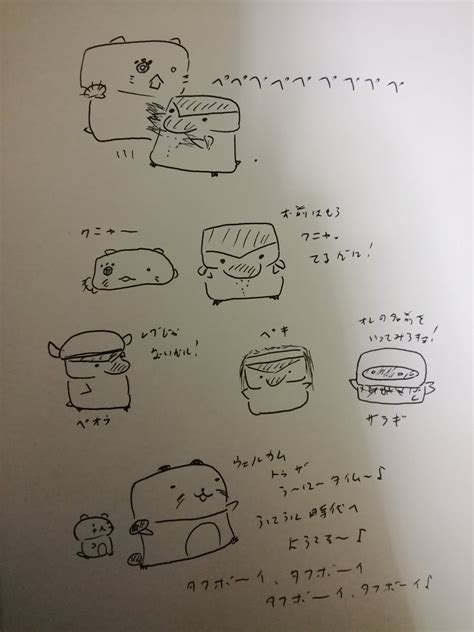 ペペペペペペペペペ
お前はもう
クニャー
クニャっ
てるぜに!
ペキ
オレの名前を
いってみろぎ!
ないかル!
ペオウ
サラギ
ウェルカム
トゥ ザ
うーはータイム～♪
時代へ
ようこそ～♪
タフボーイ、タフボーイ
タフボーイ、タフボーイ♪